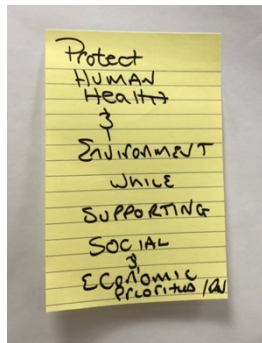 Protect
HUMAN
Health
&
ENVIRONMENT
WHILE
SUPPORTING
SOCIAL
&
ECONOMIC